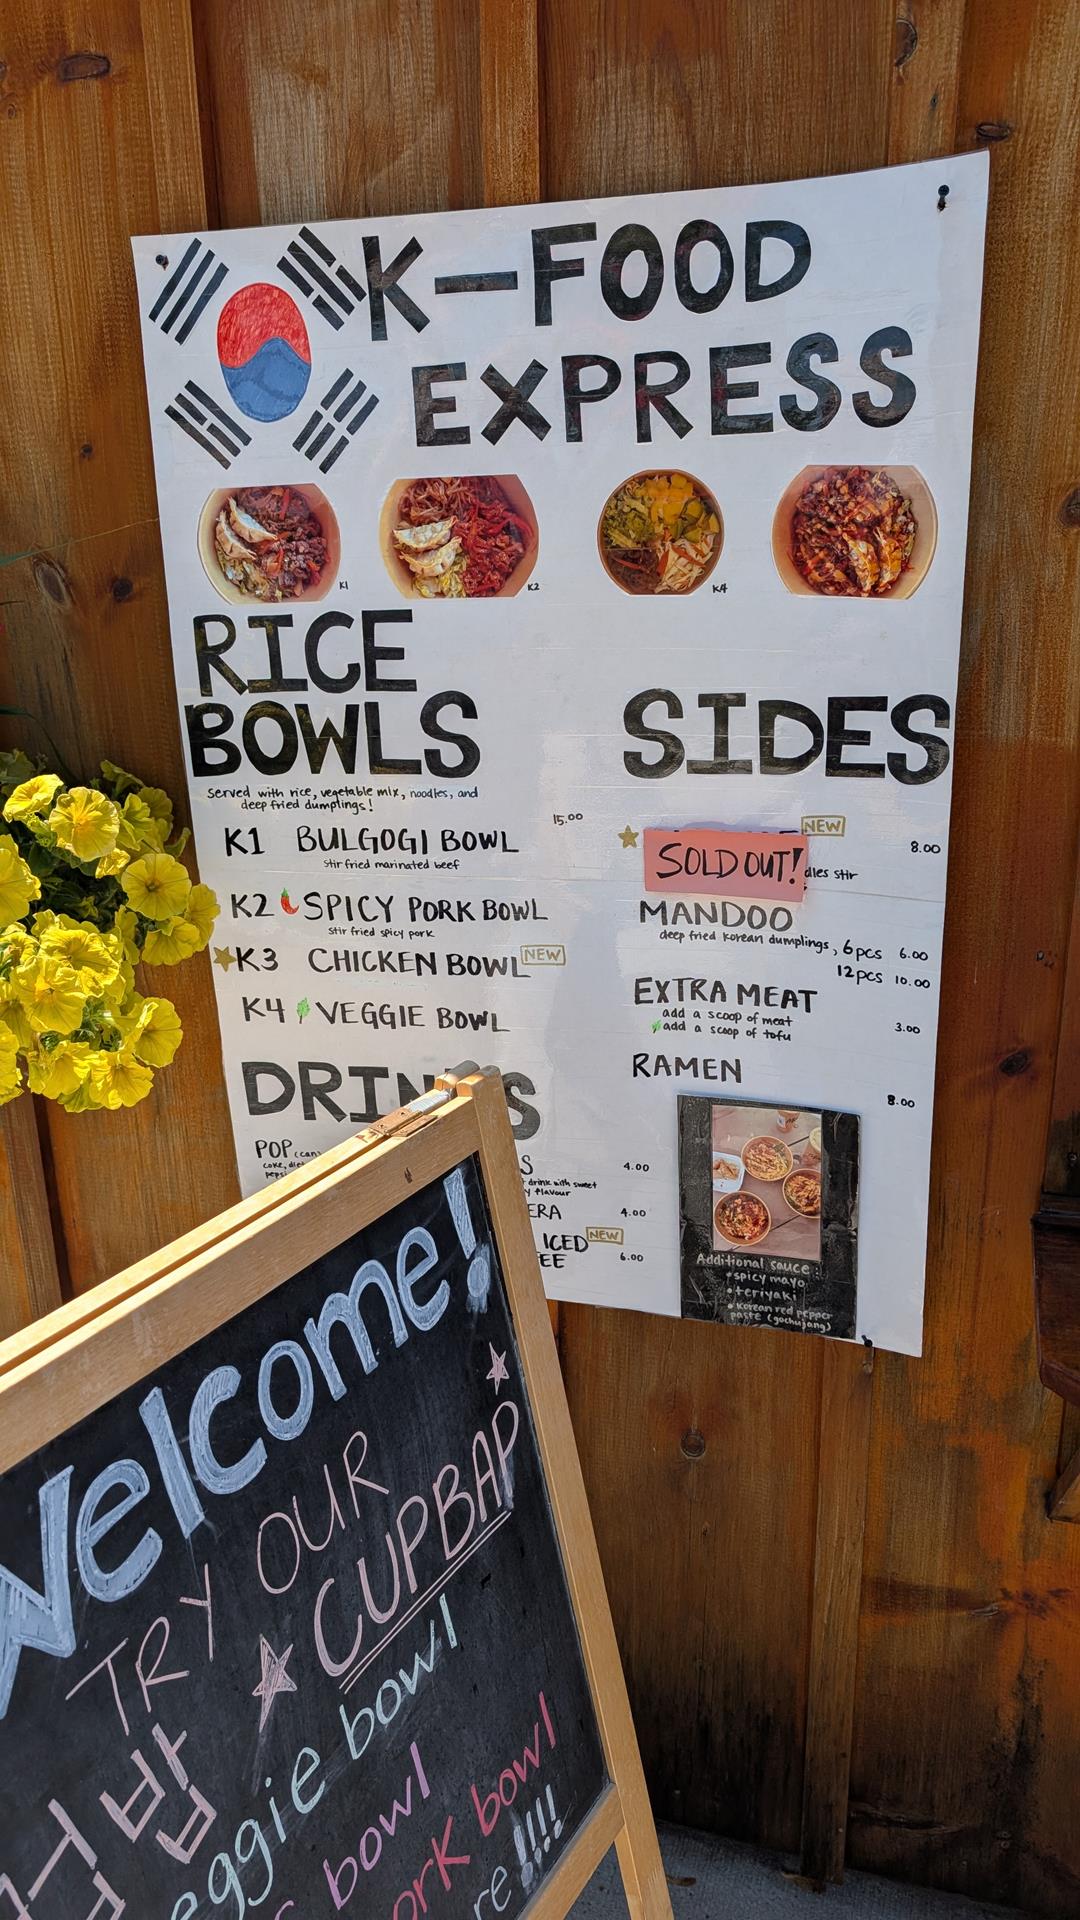 K-FOOD
EXPRESS
K1
K2
K4
RICE
BOWLS
served with rice, vegetable mix, noodles, and
deep fried dumplings!
15.00
K1 BULGOGI BOWL
stir fried marinated beef
K2 SPICY PORK BOWL
stir fried spicy pork
K3 CHICKEN BOWL NEW
K4 VEGGIE BOWL
SIDES
NEW
8.00
SOLD OUT!
dles stir
MANDOO
deep fried korean dumplings, 6pcs 6.00
12pcs 10.00
EXTRA MEAT
add a scoop of meat
add a scoop of tofu 3.00
RAMEN
8.00
Additional sauce:
• spicy mayo
• teriyaki
• korean red pepper
paste (gochujang)
DRIN S
POP (can
coke, die
pepsi
S 4.00
drink with sweet
y flavour
ERA 4.00
ICED NEW
EE 6.00
Welcome!
TRY OUR
CUPBAP
컵밥
eggie bowl
bowl
ork bowl
re!!!!